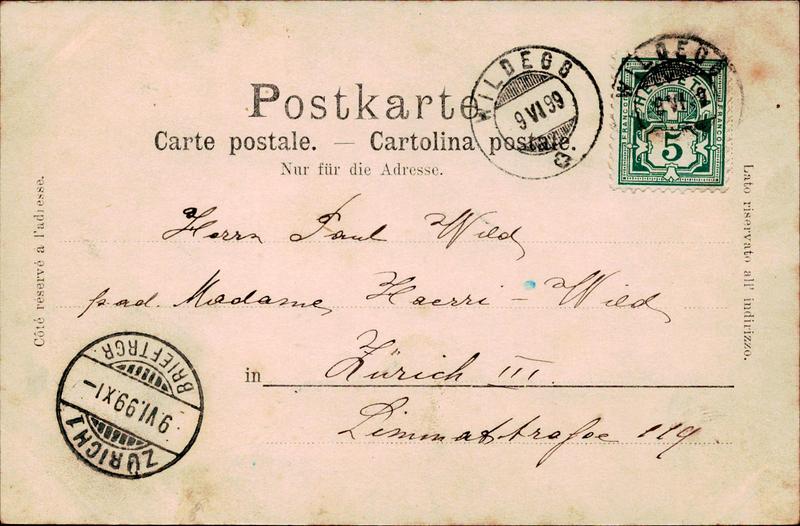 Postkarte
Carte postale. — Cartolina postale.
Nur für die Adresse.
WILDEGG
9 VI 99
WILDEGG
HELVETIA
FRANCO
FRANCO
5
Côté réservé à l'adresse.
Lato riservato all' indirizzo.
Herrn Paul Wild
pad. Madame Haerri - Wild
in Zürich III.
Limmatstrasse 119.
BRIEFTRGR
9 VI.99 XI-
ZÜRICH 1